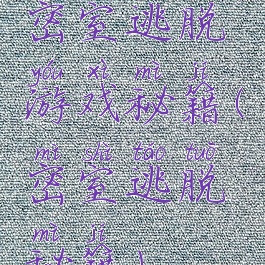 密室逃脱
yóu xì mì jí
游戏秘籍(
mì shì táo tuō
密室逃脱
mì jí
秘籍)